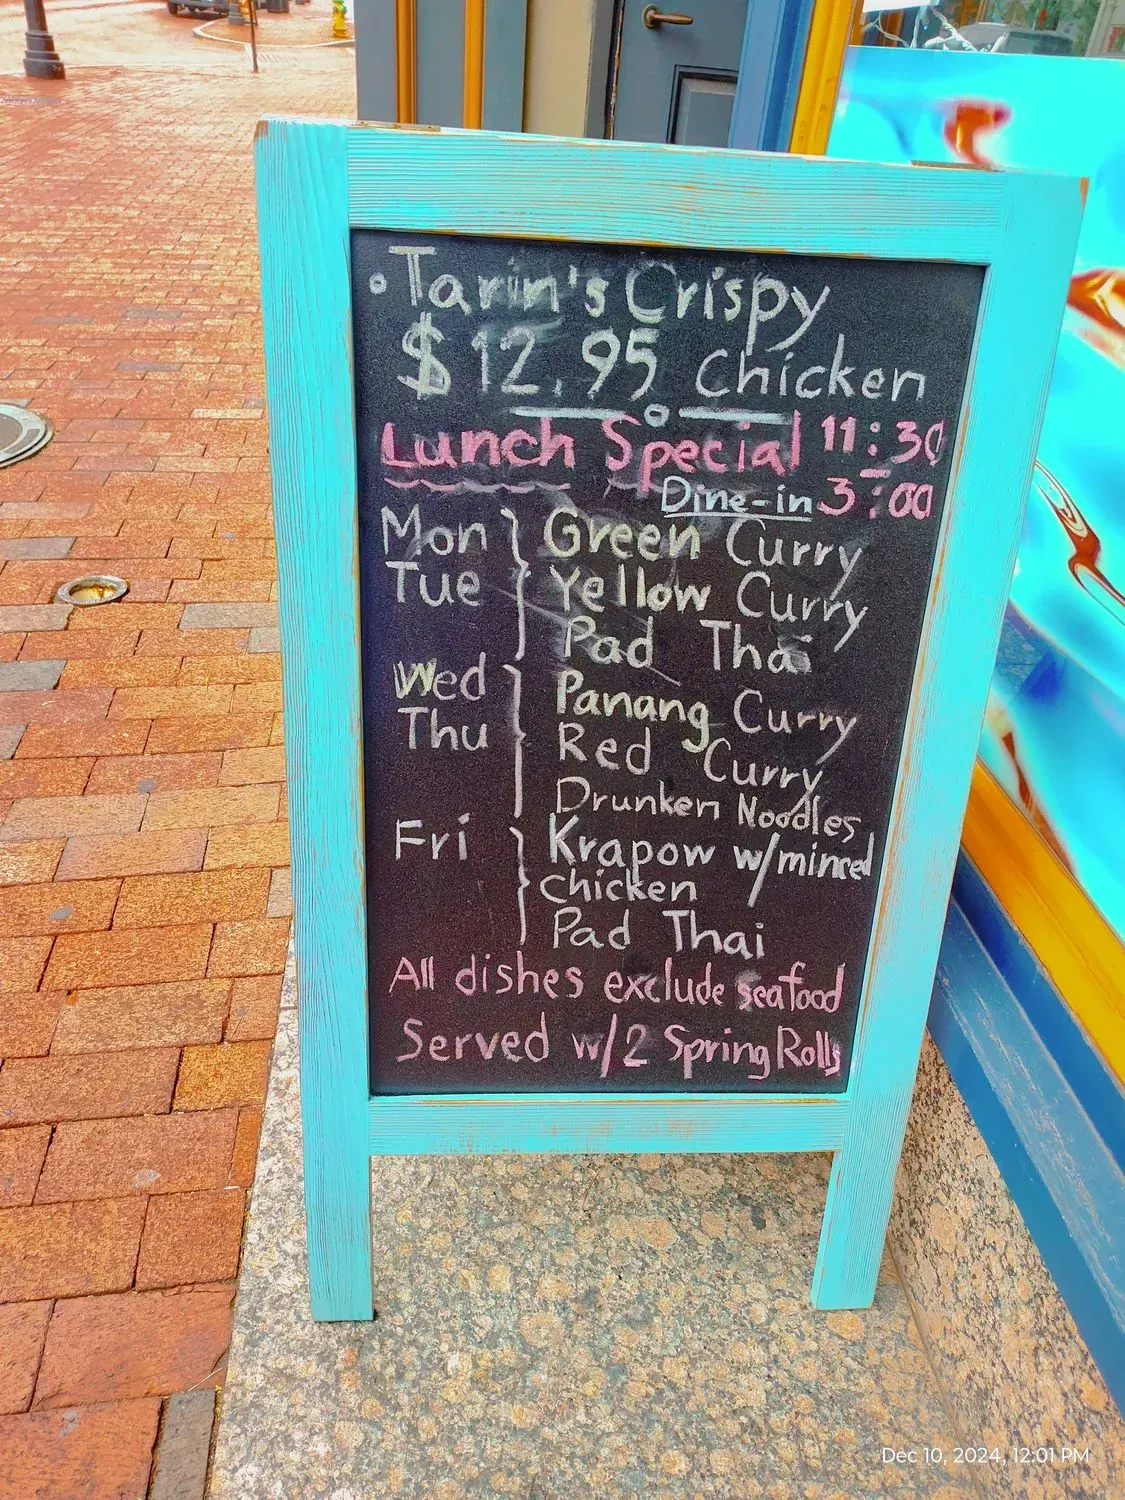 • Tarin's Crispy
$12.95 Chicken
Lunch Special 11:30
Dine-in 3:00
Mon } Green Curry
Tue Yellow Curry
Pad Thai
Wed } Panang Curry
Thu Red Curry
Drunken Noodles
Fri } Krapow w/minced
chicken
Pad Thai
All dishes exclude seafood
Served w/2 Spring Rolls
Dec 10, 2024, 12:01 PM